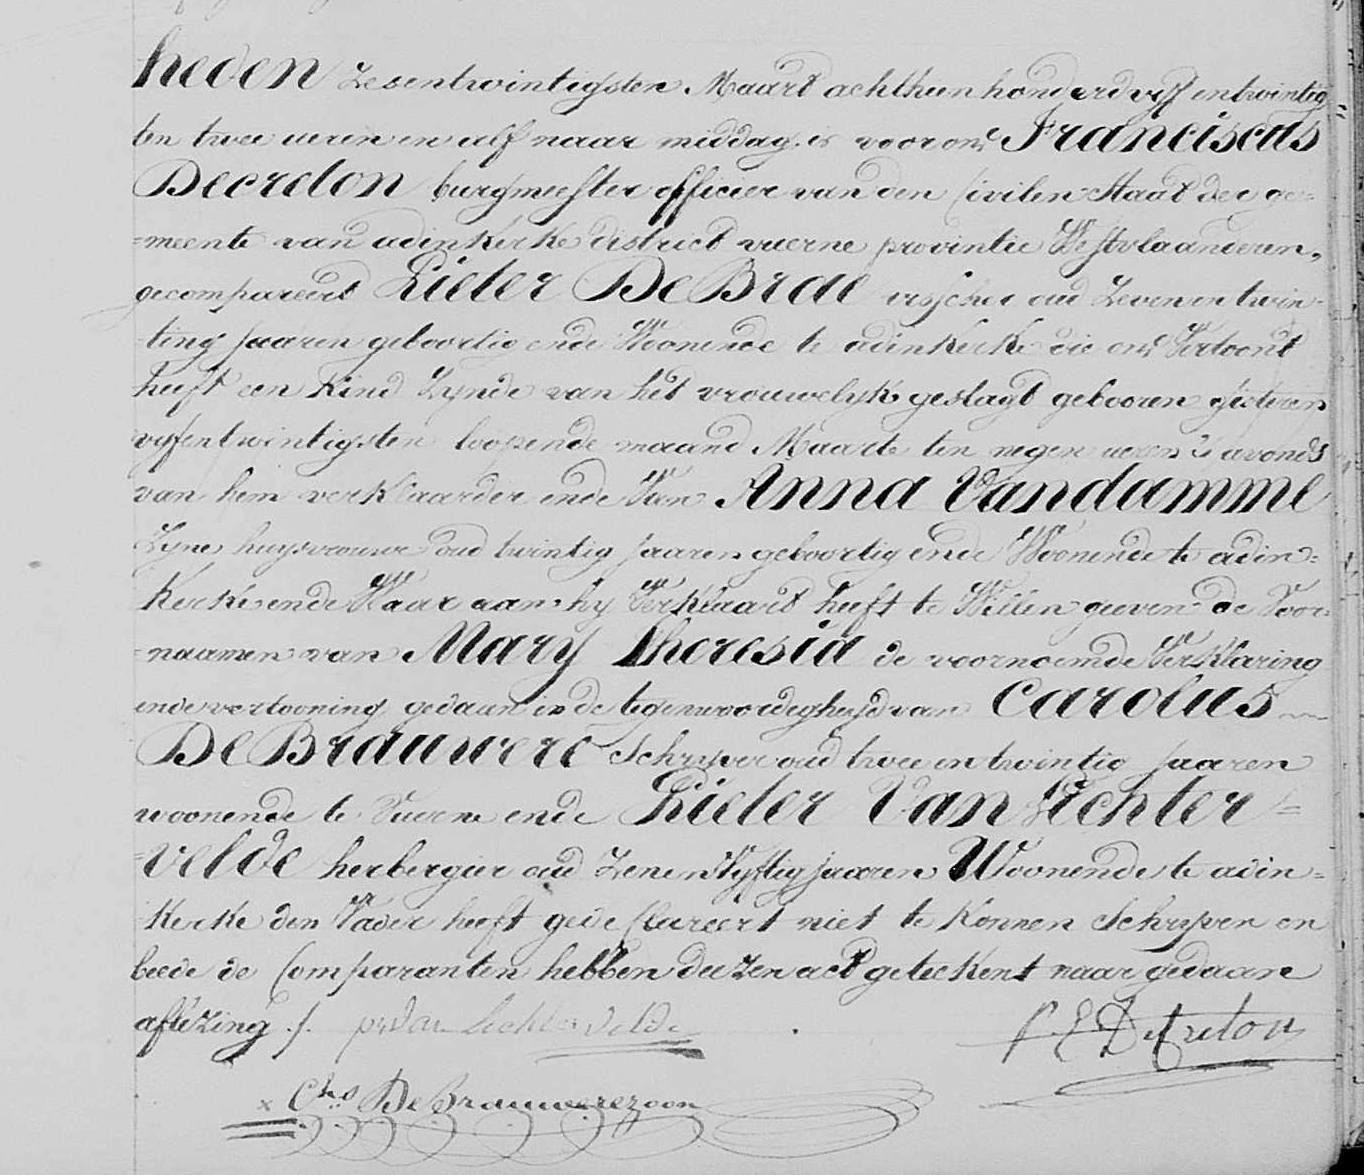 heden zesentwintigsten Maart achthien honderd vyf entwintig
ten twee ueren en alf naar middag is voor ons Franciscus
Decreton burgmeester officier van den Civilen Staat der ge=
=meente van adinkerke district vuerne provintie Westvlaanderen,
gecompareert Pieter De Brae visscher oud zeven en twin-
ting jaaren geboortig ende Woonende te adinkerke die ons Vertoont
heeft een kind zynde van het vrouwelyk geslagt gebooren gisteren
vyfentwintigsten loopende maand Maarte ten negen ueren 's avonds
van hem verklaarder ende Van Anna Vandamme
zyne huysvrouwe oud twintig jaaren geboortig ende Woonende te adin=
kerke ende Waar aan hy Verklaart heeft te Willen geeven de Voor=
=naamen van Mary Theresia de voornoemde Verklaring
ende vertooning gedaan in de tegenwoordigheyd van Carolus
De Brauwere Schryver oud twee en twintig jaaren
woonende te Vuerne ende Pieter Van Lichter=
=velde herbergier oud zenenvyftig jaaren Woonende te adin=
kerke den Vader heeft gedeclareert niet te konnen Schryven en
beede de Comparanten hebben deezen act geteekent naar gedaane
aflezing ./. p. van Lichtervelde F E Decreton
x Chs De Brauwerezoon